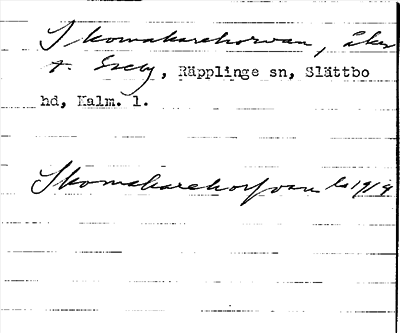 Skomakarehorvan, åker
f. Eneby, Räpplinge sn, Slättbo
hd, Kalm. l.
Skomakarehorfvan ls 1919